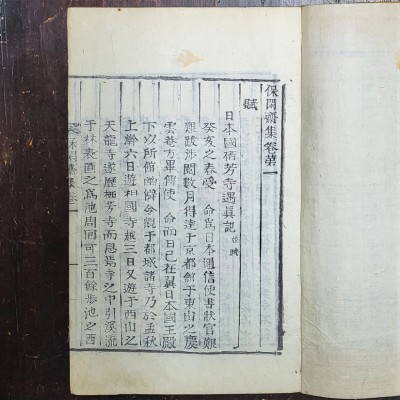 保閑齋集卷第一
賦
日本國栖芳寺遇眞記 並賦
癸亥之春受 命爲日本通信使書狀官艱
難跋涉閱數月得達于京都館于東山之慶
雲菴方畢傳使 命而日已在翼日本國王殿
下以所館幽僻令觀于都城諸寺乃於孟秋
上澣六日遊相國寺越三日又遊于西山之
天龍寺遂歷栖芳寺而息焉寺之中引溪流
于林表匯之爲池周回可三百餘步池之西